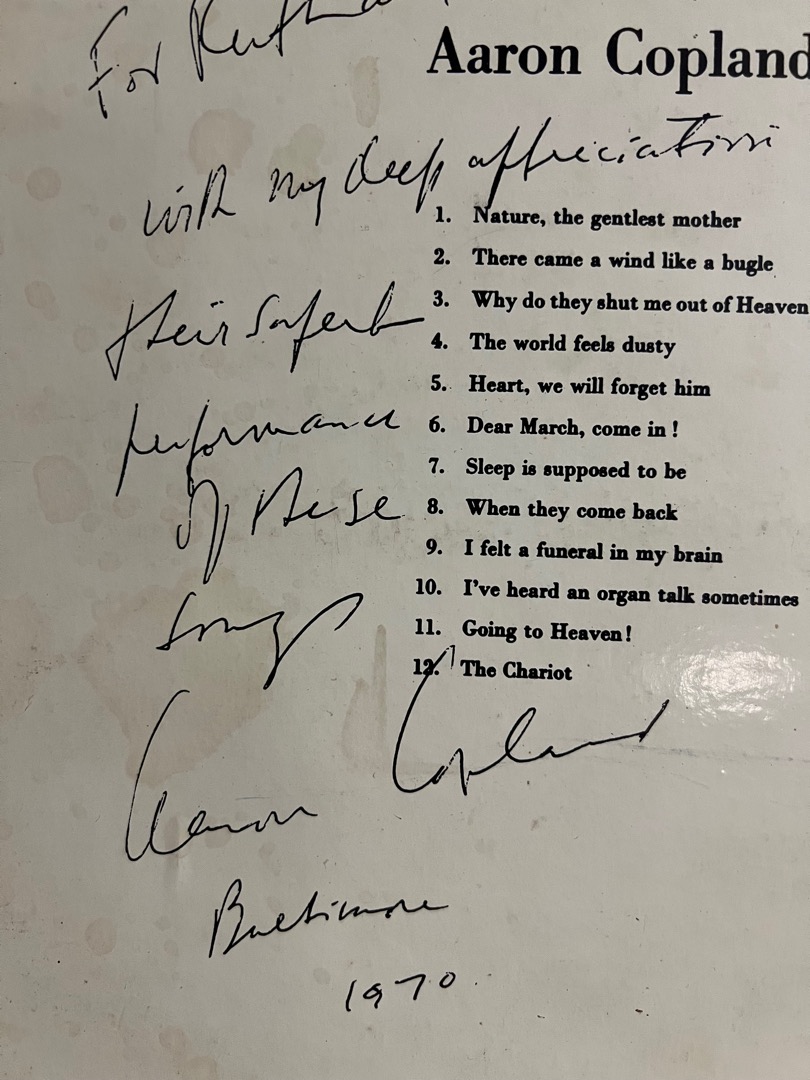 For Ruth
Aaron Copland
with my deep appreciation
1. Nature, the gentlest mother
2. There came a wind like a bugle
their superb
3. Why do they shut me out of Heaven
4. The world feels dusty
5. Heart, we will forget him
performance
6. Dear March, come in !
7. Sleep is supposed to be
of these
8. When they come back
9. I felt a funeral in my brain
10. I've heard an organ talk sometimes
songs
11. Going to Heaven !
12. The Chariot
Aaron Copland
Baltimore
1970